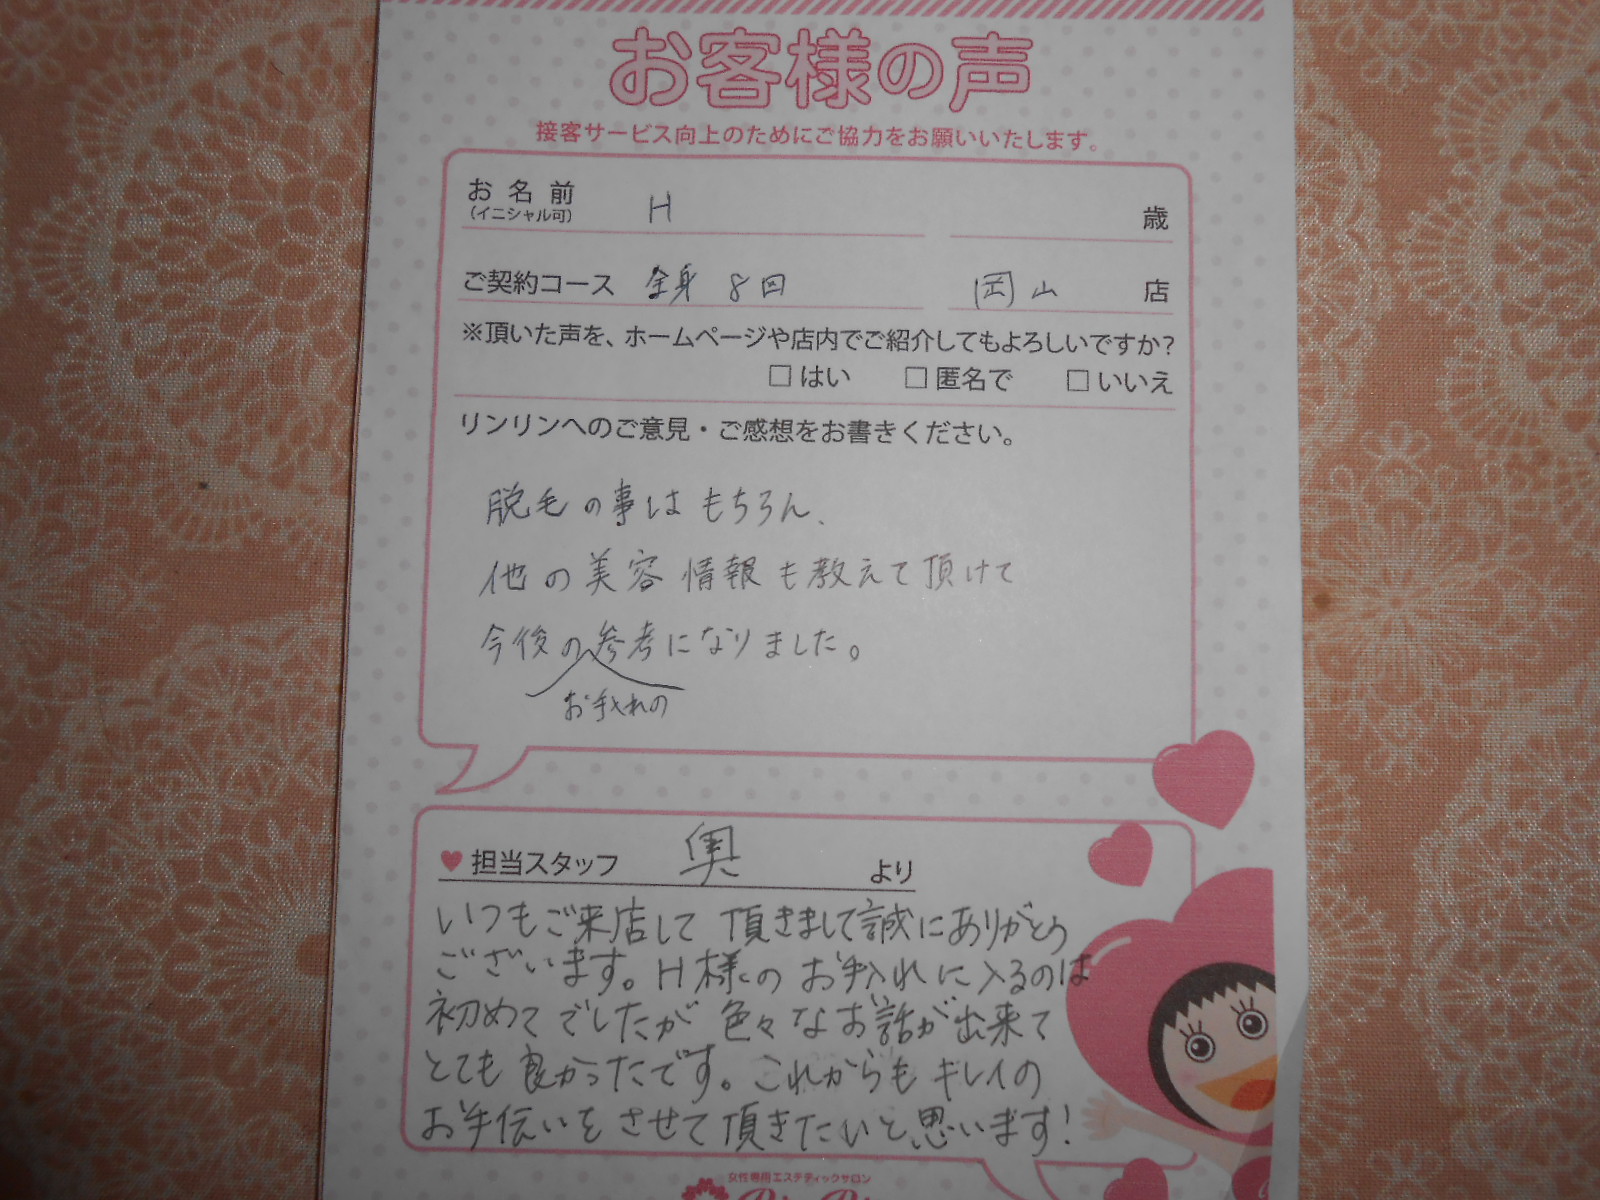 お客様の声
接客サービス向上のためにご協力をお願いいたします。
お名前 H 歳
(イニシャル可)
ご契約コース 全身 8回 岡山 店
※頂いた声を、ホームページや店内でご紹介してもよろしいですか？
□はい □匿名で □いいえ
リンリンへのご意見・ご感想をお書きください。
脱毛の事はもちろん、
他の美容情報も教えて頂けて
今後の参考になりました。
お手入れの
担当スタッフ 奥 より
いつもご来店して頂きまして誠にありがとう
ございます。H様のお手入れに入るのは
初めてでしたが色々なお話が出来て
とても良かったです。これからもキレイの
お手伝いをさせて頂きたいと思います！
女性専用エステティックサロン